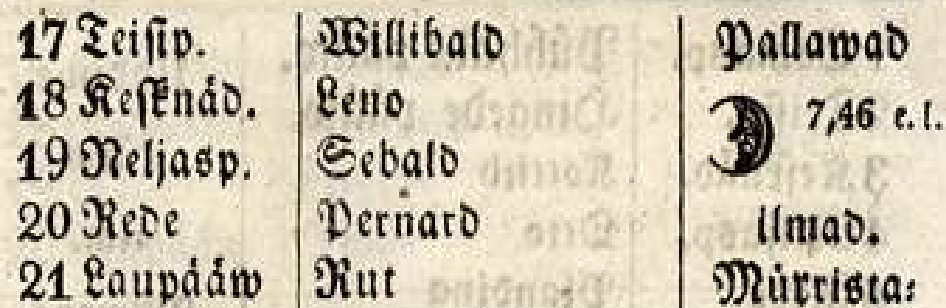 17 Teisip. Willibald Pallawad
18 Keſknäd. Leno 7,46 e. l.
19 Neljasp. Sebald
20 Rede Pernard ilmad.
21 Laupääw Rut Mürrista: